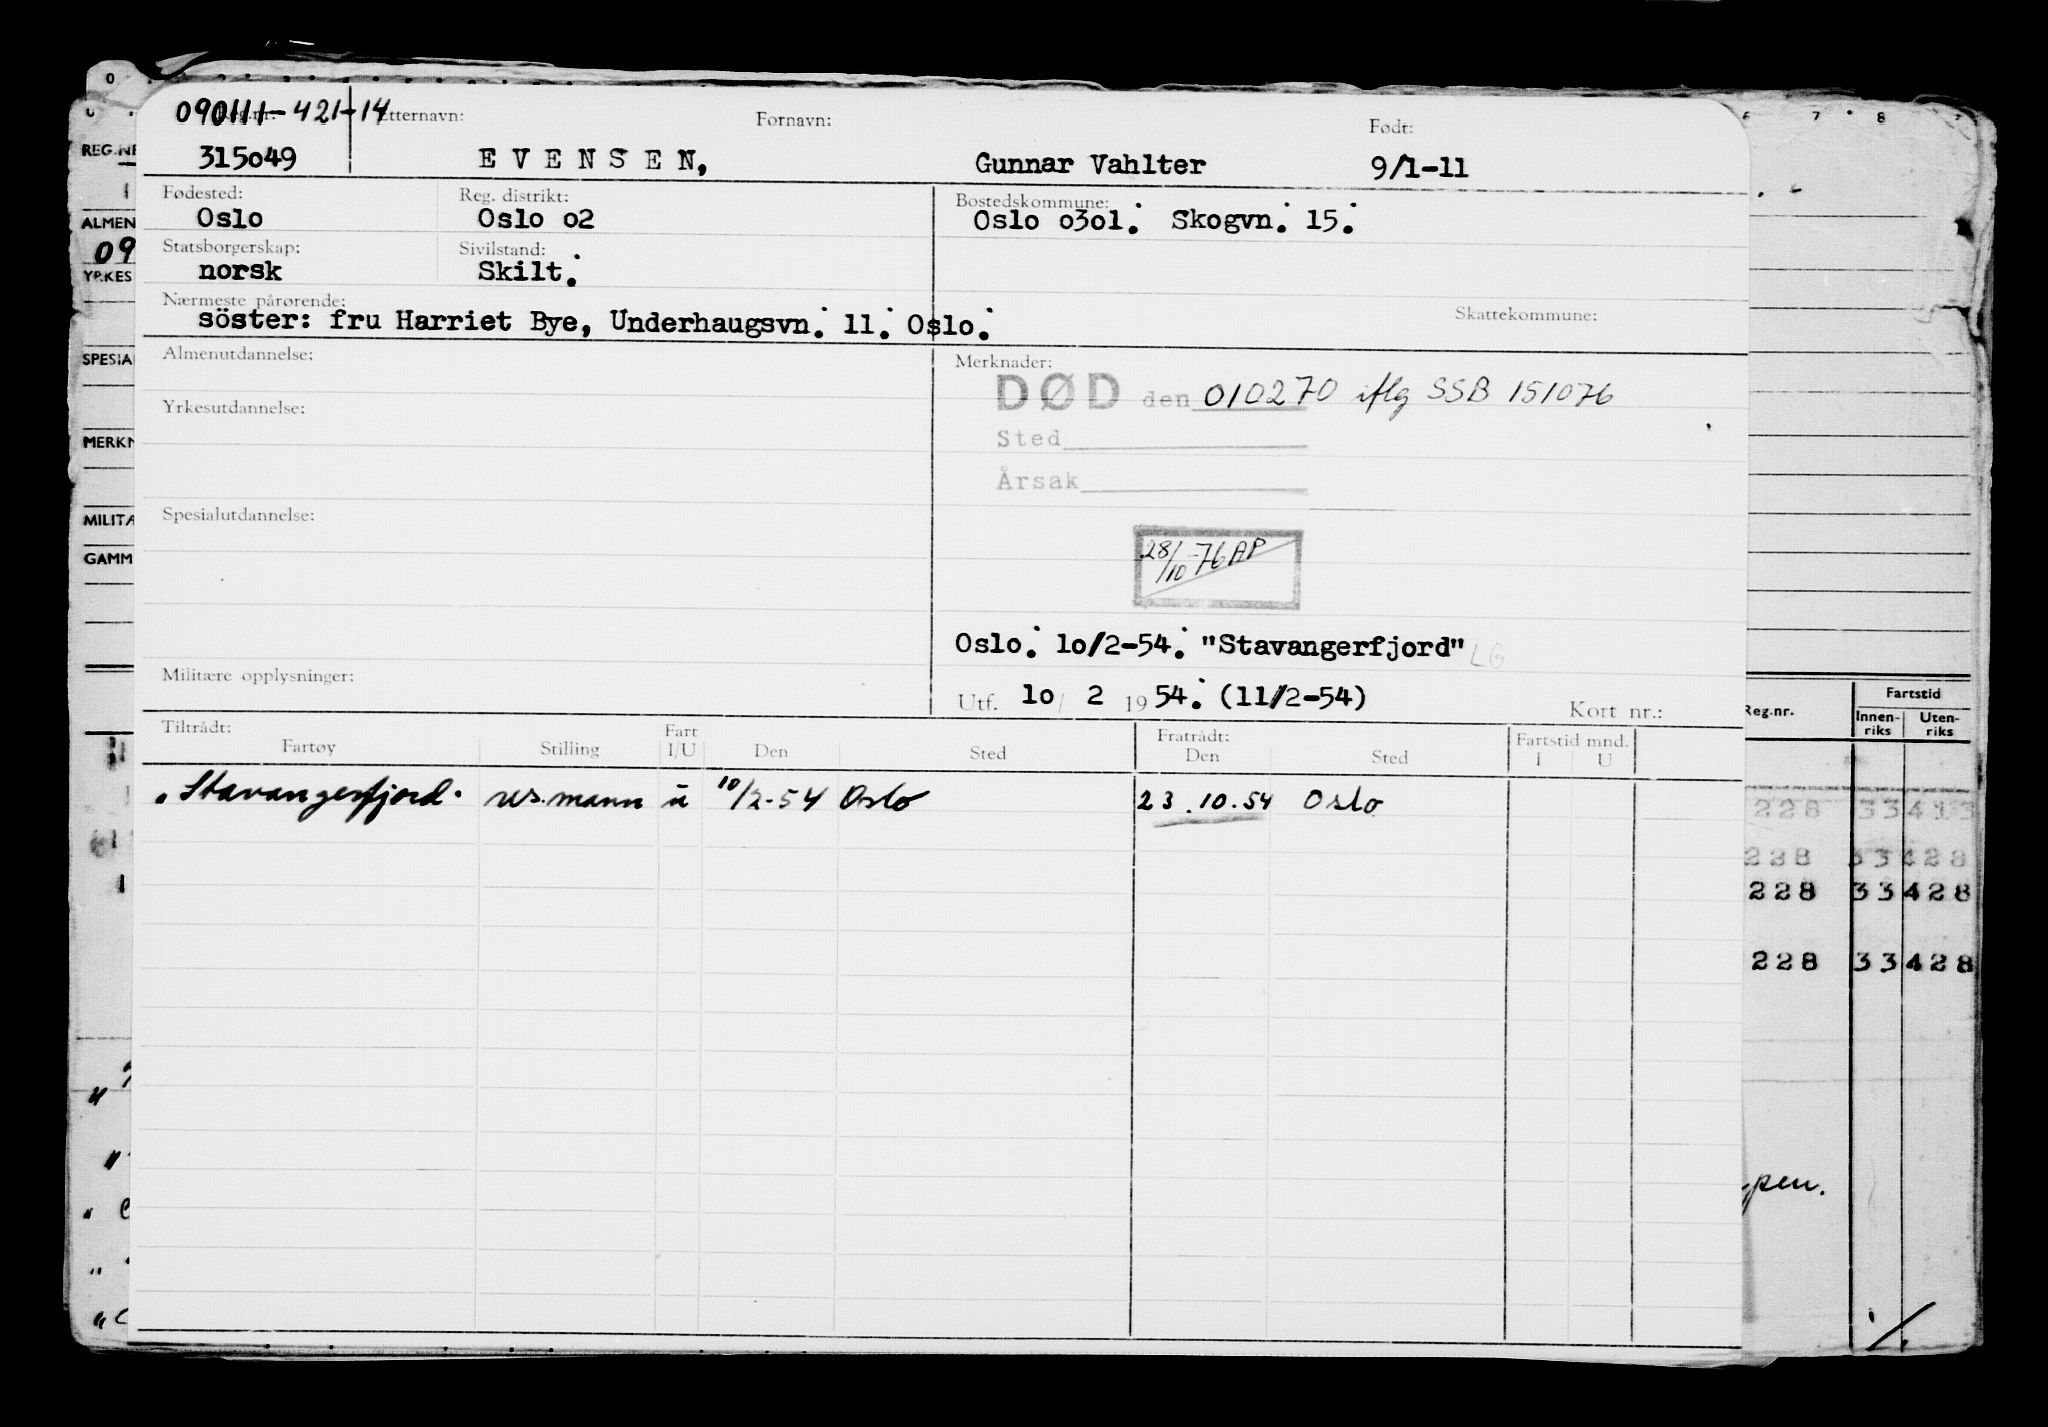 090111-421-14
Reg.nr.: Etternavn: Fornavn: Født:
315o49 EVENSEN, Gunnar Vahlter 9/1-11
Fødested: Reg. distrikt: Bostedskommune:
Oslo Oslo o2 Oslo o3o1. Skogvn. 15.
Statsborgerskap: Sivilstand:
norsk Skilt.
Nærmeste pårørende: Skattekommune:
söster: fru Harriet Bye, Underhaugsvn. 11. Oslo.
Almenutdannelse: Merknader:
DØD den 010270 iflg SSB 151076
Yrkesutdannelse:
Sted
Årsak
Spesialutdannelse:
28/10-76 AP
Oslo. 1o/2-54. "Stavangerfjord" LG
Militære opplysninger:
Utf. 1o/ 2 1954. (11/2-54) Kort nr.:
Tiltrådt: Fart Fratrådt: Fartstid mnd.
Fartøy Stilling I/U Den Sted Den Sted I U
"Stavangerfjord" mann u 10/2-54 Oslo 23.10.54 Oslo
REG.NR
ALMEN
09
YRKES
SPESIA
MERKN
MILITÆ
GAMM
0
7 8
Reg.nr. Fartstid
Innen-riks Uten-riks
228 33428
228 33428
228 33428
pen.